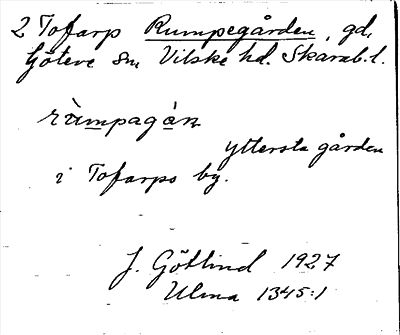 2 Tofarp Rumpegården, gd,
Göteve sn, Vilske hd. Skarab. l.
rùmpagán
yttersta gården
i Tofarps by.
J. Götlind 1927
Ulma 1345:1